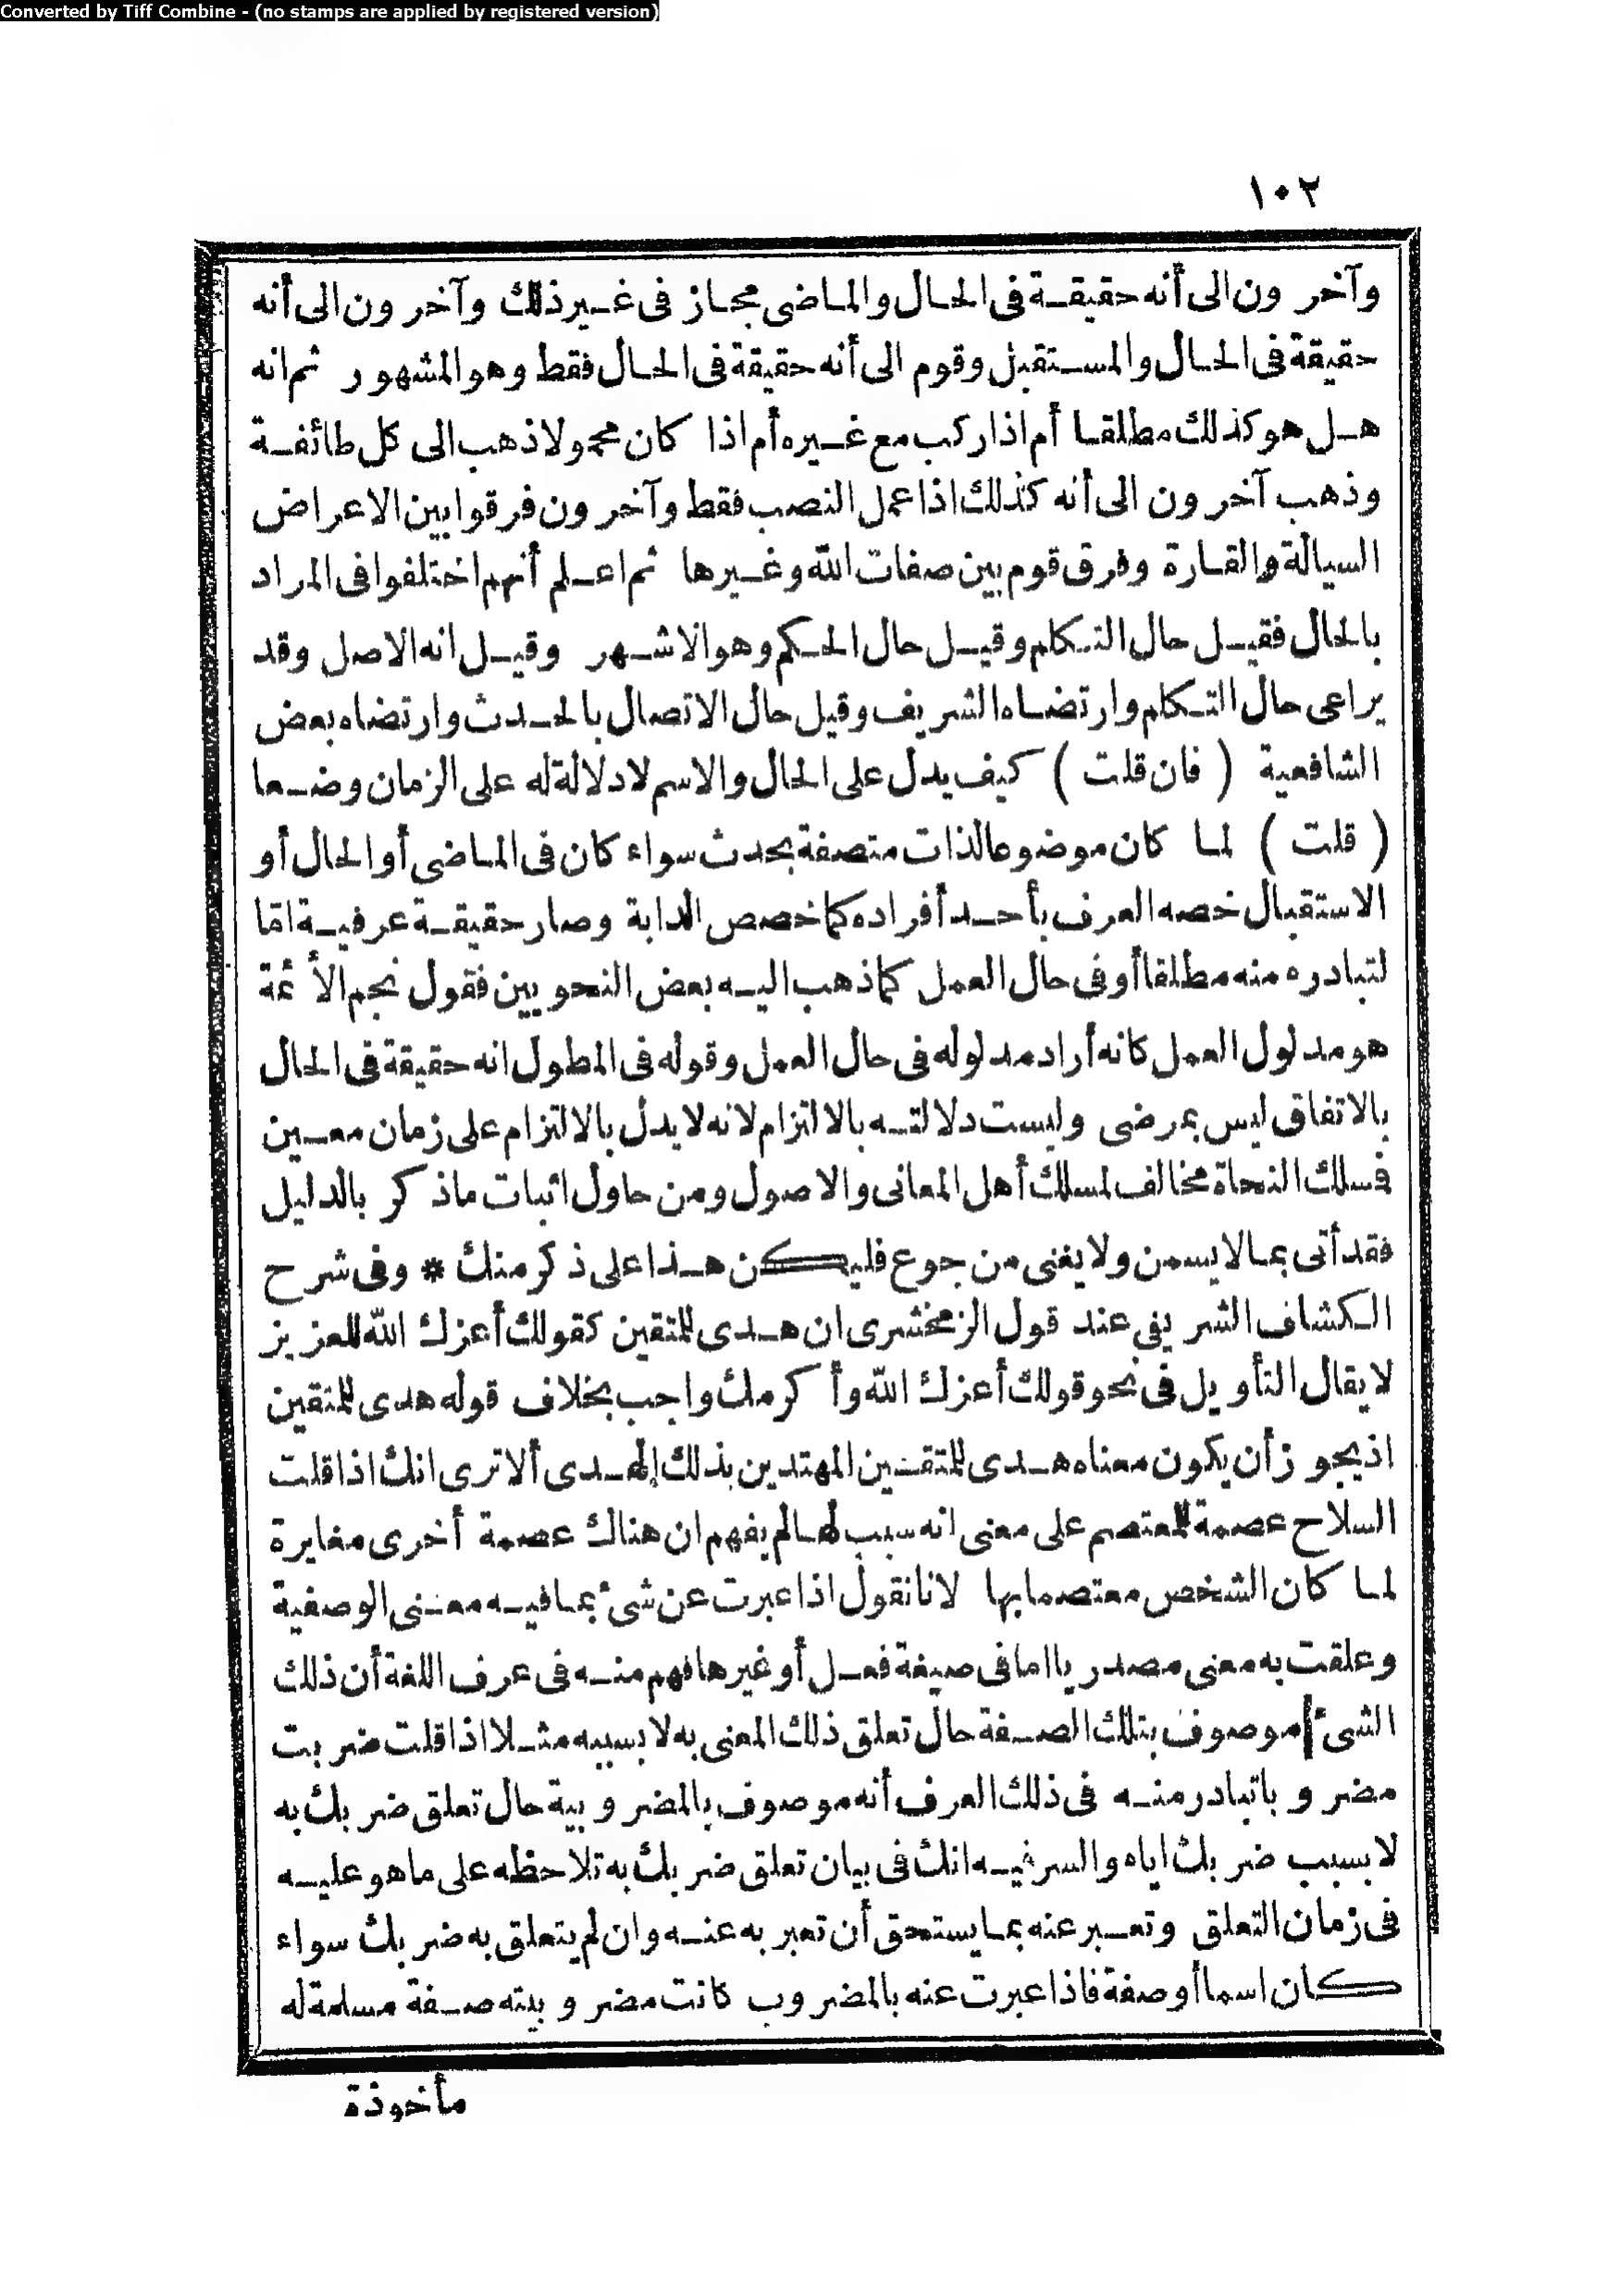 Converted by Tiff Combine - (no stamps are applied by registered version)
١٠٢
وآخرون الى أنه حقيقة فى الحال والماضى مجاز فى غير ذلك وآخرون الى أنه
حقيقة فى الحال والمستقبل وقوم الى أنه حقيقة فى الحال فقط وهو المشهور ثم انه
هل هو كذلك مطلقا أم اذا ركب مع غيره أم اذا كان محمولا ذهب الى كل طائفة
وذهب آخرون الى أنه كذلك اذا عمل النصب فقط وآخرون فرقوا بين الاعراض
السيالة والقارة وفرق قوم بين صفات الله وغيرها ثم اعلم أنهم اختلفوا فى المراد
بالحال فقيل حال التكلم وقيل حال الحكم وهو الاشهر وقيل انه الاصل وقد
يراعى حال التكلم وارتضاه الشريف وقيل حال الاتصال بالحدث وارتضاه بعض
الشافعية ( فان قلت ) كيف يدل على الحال والاسم لا دلالة له على الزمان وضعا
( قلت ) لما كان موضوعا لذات متصفة بحدث سواء كان فى الماضى أو الحال أو
الاستقبال خصه العرف بأحد أفراده كما خصص الدابة وصار حقيقة عرفية امّا
لتبادره منه مطلقا أو فى حال العمل كما ذهب اليه بعض النحويين فقول نجم الأئمة
هو مدلول العمل كانه أراد مدلوله فى حال العمل وقوله فى المطول انه حقيقة فى الحال
بالاتفاق ليس بمرضى وليست دلالته بالالتزام لانه لا يدل بالالتزام على زمان معين
فسلك النحاة مخالف لمسلك أهل المعانى والاصول ومن حاول اثبات ما ذكر بالدليل
فقد أتى بما لا يسمن ولا يغنى من جوع فليكن هذا على ذكر منك * وفى شرح
الكشاف الشريفى عند قول الزمخشرى ان هدى للمتقين كقولك أعزك الله للعزيز
لا يقال التأويل فى نحو قولك أعزك الله وأكرمك واجب بخلاف قوله هدى للمتقين
اذ يجوز أن يكون معناه هدى للمتقين المهتدين بذلك الهدى ألا ترى انك اذا قلت
السلاح عصمة للمعتصم على معنى انه سبب لها لم يفهم ان هناك عصمة أخرى مغايرة
لما كان الشخص معتصما بها لانا نقول اذا عبرت عن شئ بما فيه معنى الوصفية
وعلقت به معنى مصدريا اما فى صيغة فعل أو غيرها فهم منه فى عرف اللغة أن ذلك
الشئ موصوف بتلك الصفة حال تعلق ذلك المعنى به لا بسببه مثلا اذا قلت ضربت
مضروبا تبادر منه فى ذلك العرف أنه موصوف بالمضروبية حال تعلق ضربك به
لا بسبب ضربك اياه والسر فيه انك فى بيان تعلق ضربك به تلاحظه على ما هو عليه
فى زمان التعلق وتعبر عنه بما يستحق أن تعبر به عنه وان لم يتعلق به ضربك سواء
كان اسما أو صفة فاذا عبرت عنه بالمضروب كانت مضروبيته صفة مسلمة له
مأخوذة